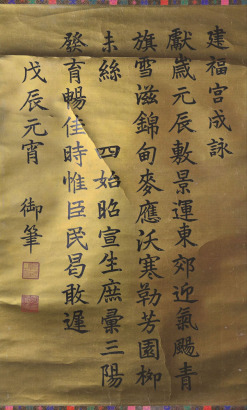 建福宮成詠
獻歲元辰敷景運東郊迎氣颺青
旗雪滋錦甸麥應沃寒勒芳園柳
未絲 四始昭宣生庶彙三陽
發育暢佳時惟臣民曷敢遲
戊辰元宵 御筆